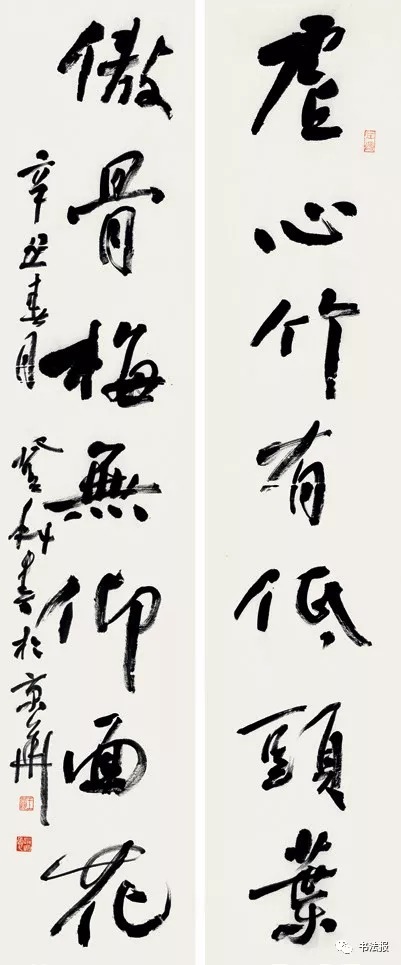 虚心竹有低頭葉
傲骨梅無仰面花
辛丑春月 登科書於京華
书法报